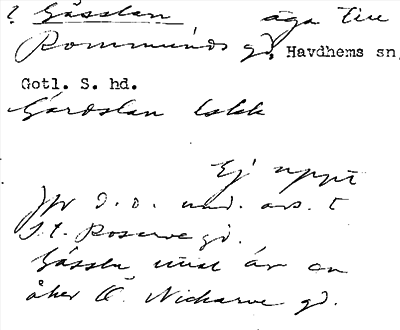 ? Gässlan äga till
Rommunds gd, Havdhems sn,
Gotl. S. hd.
Gärdslan
Ej uppt
Jfr d. o. und. avs. t
St. Rosarve gd.
Gässla är en
åker Ö. Nickarve gd.